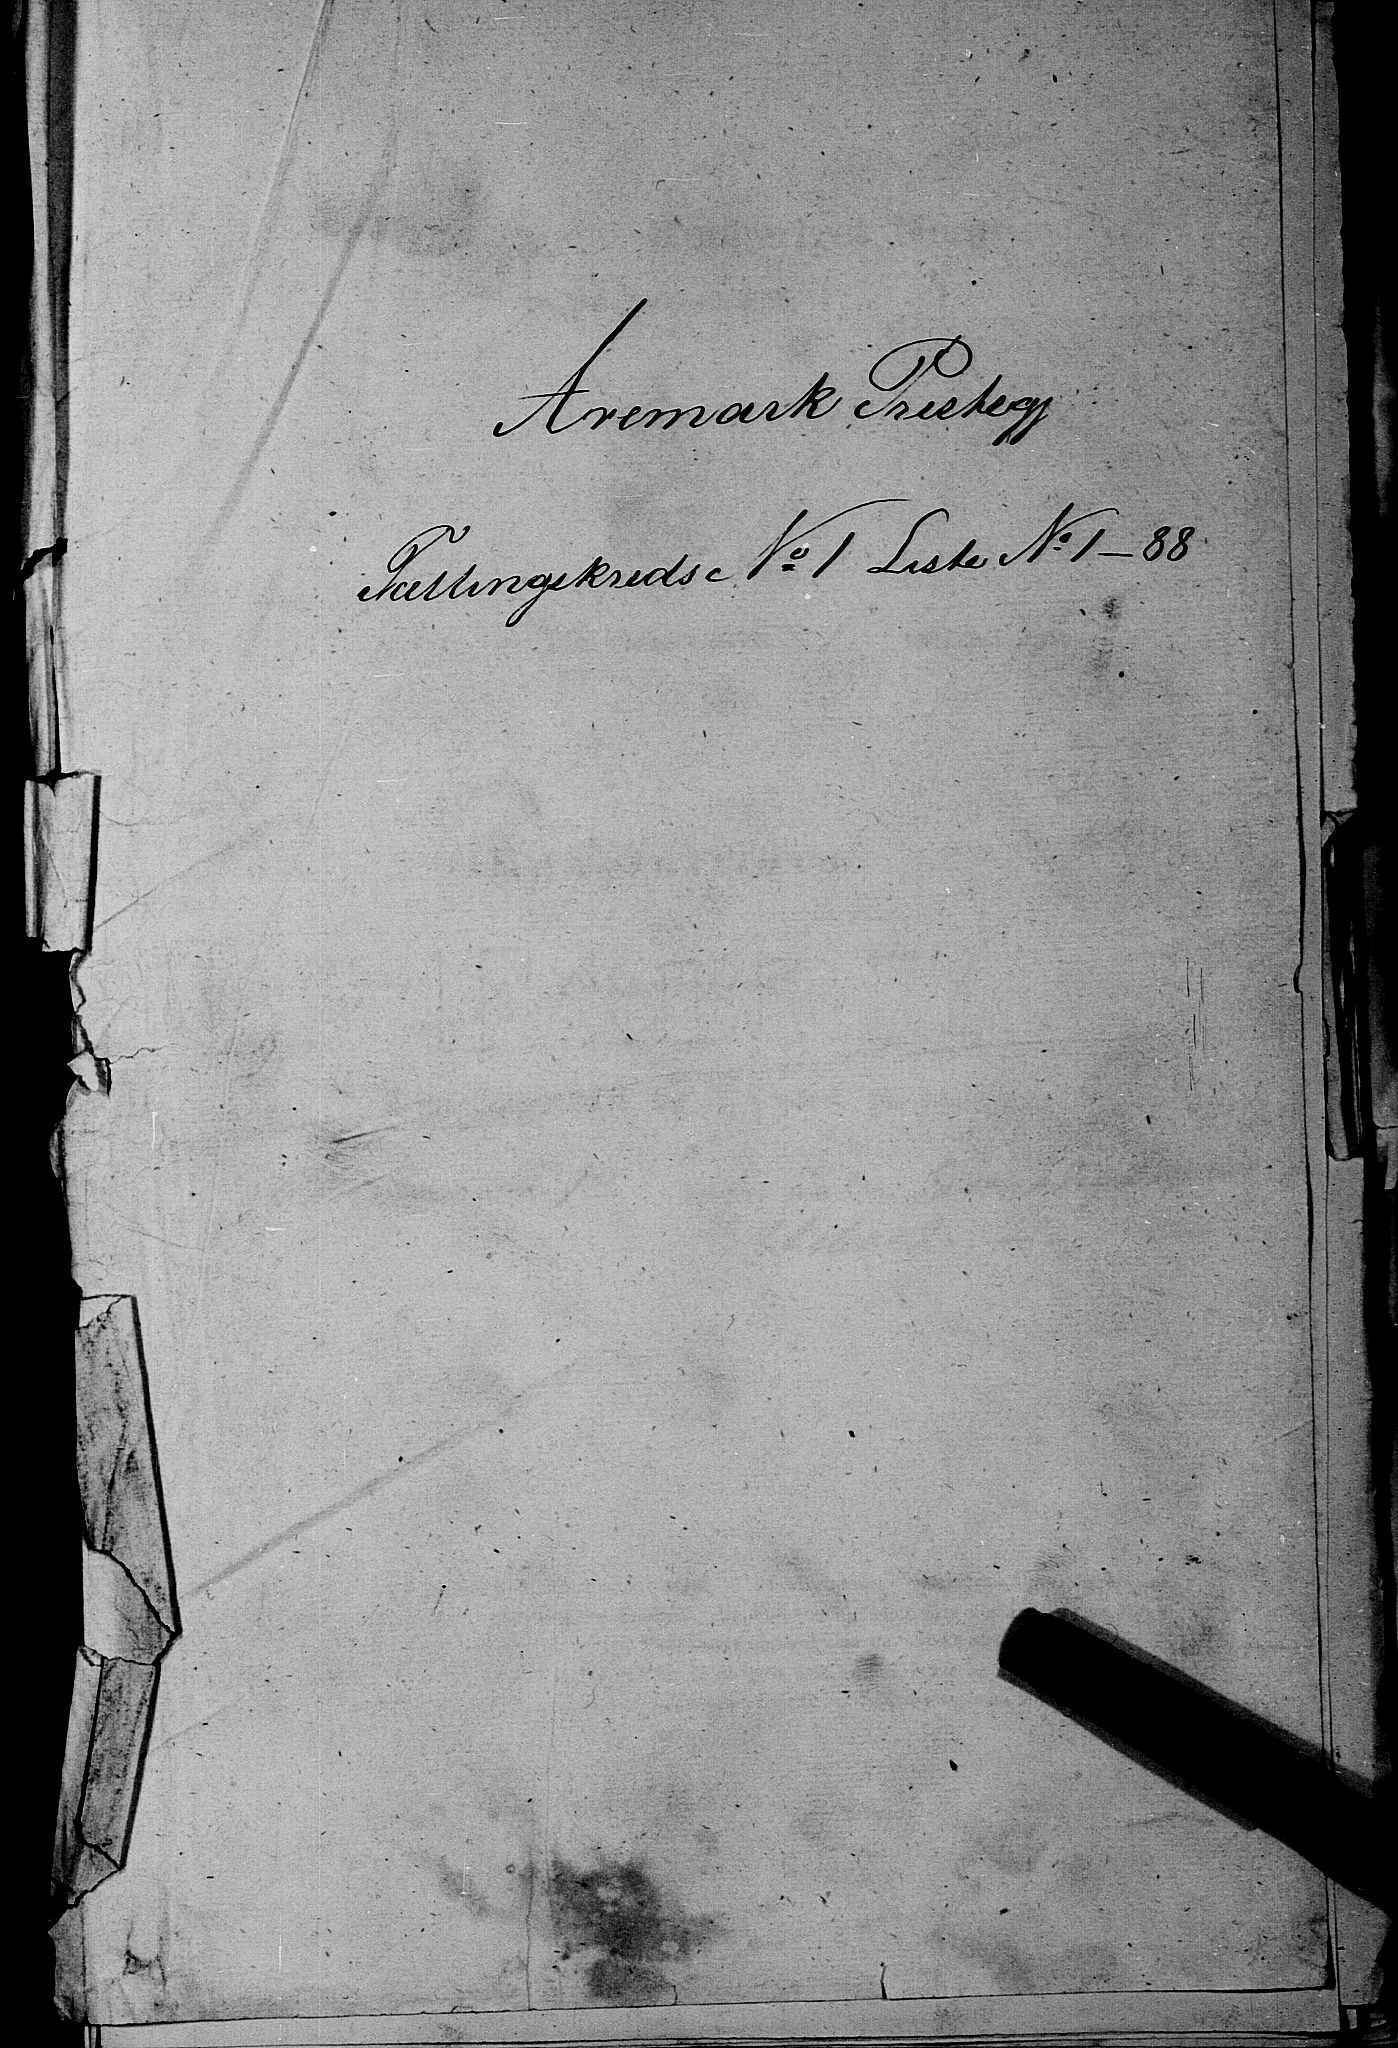 Aremark Prestegj
Tællingskreds No 1 Liste No 1 – 88